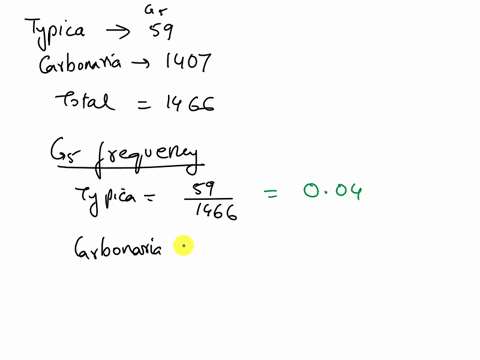 G5
Typica → 59
Carbonaria → 1407
Total = 1466
G5 frequency
Typica = 59/1466 = 0.04
Carbonaria